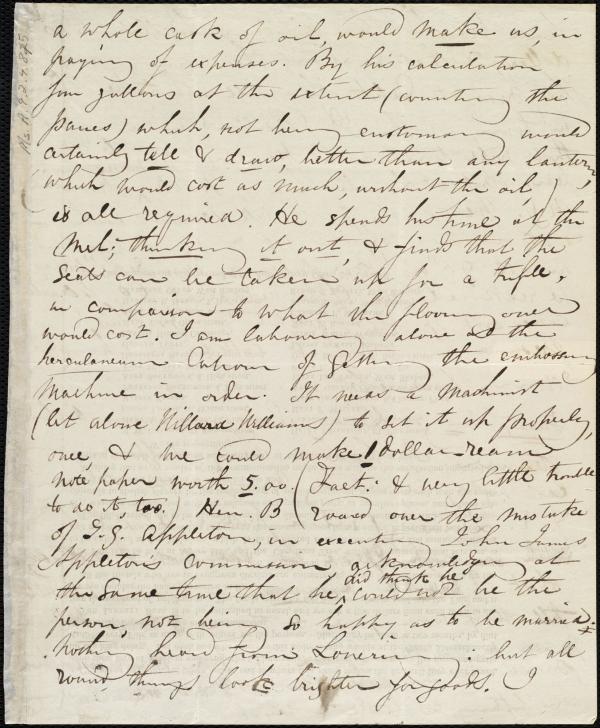 a whole cask of oil, would make us, in
paying of expenses. By his calculation
four gallons at the extent (counting the
panes) which, not being customary would
certainly tell & draw, better than any lantern,
(which would cost as much, without the oil,)
is all required. He spends his time at the
Mel; thinking it out, & finds that the
Seats can be taken up for a trifle,
in comparison to what the flooring over
would cost. I am labouring alone at the
herculaneum labour of getting the embossing
Machine in order. It needs a Machinist
(let alone Willard Williams) to set it up properly,
once, & we could make 1 dollar ream
note paper worth 5.00. (Fact: & very little trouble
to do it, too.) Hen. B roared over the mistake
of T.G. Appleton, in executing John James
Appleton's commission acknowledging at
the same time that he did think he could not be the
person, not being so happy as to be married.
Nothing heard from Lovering: but all
round, things look brighter for goods. I
Ms A.9.2 v.